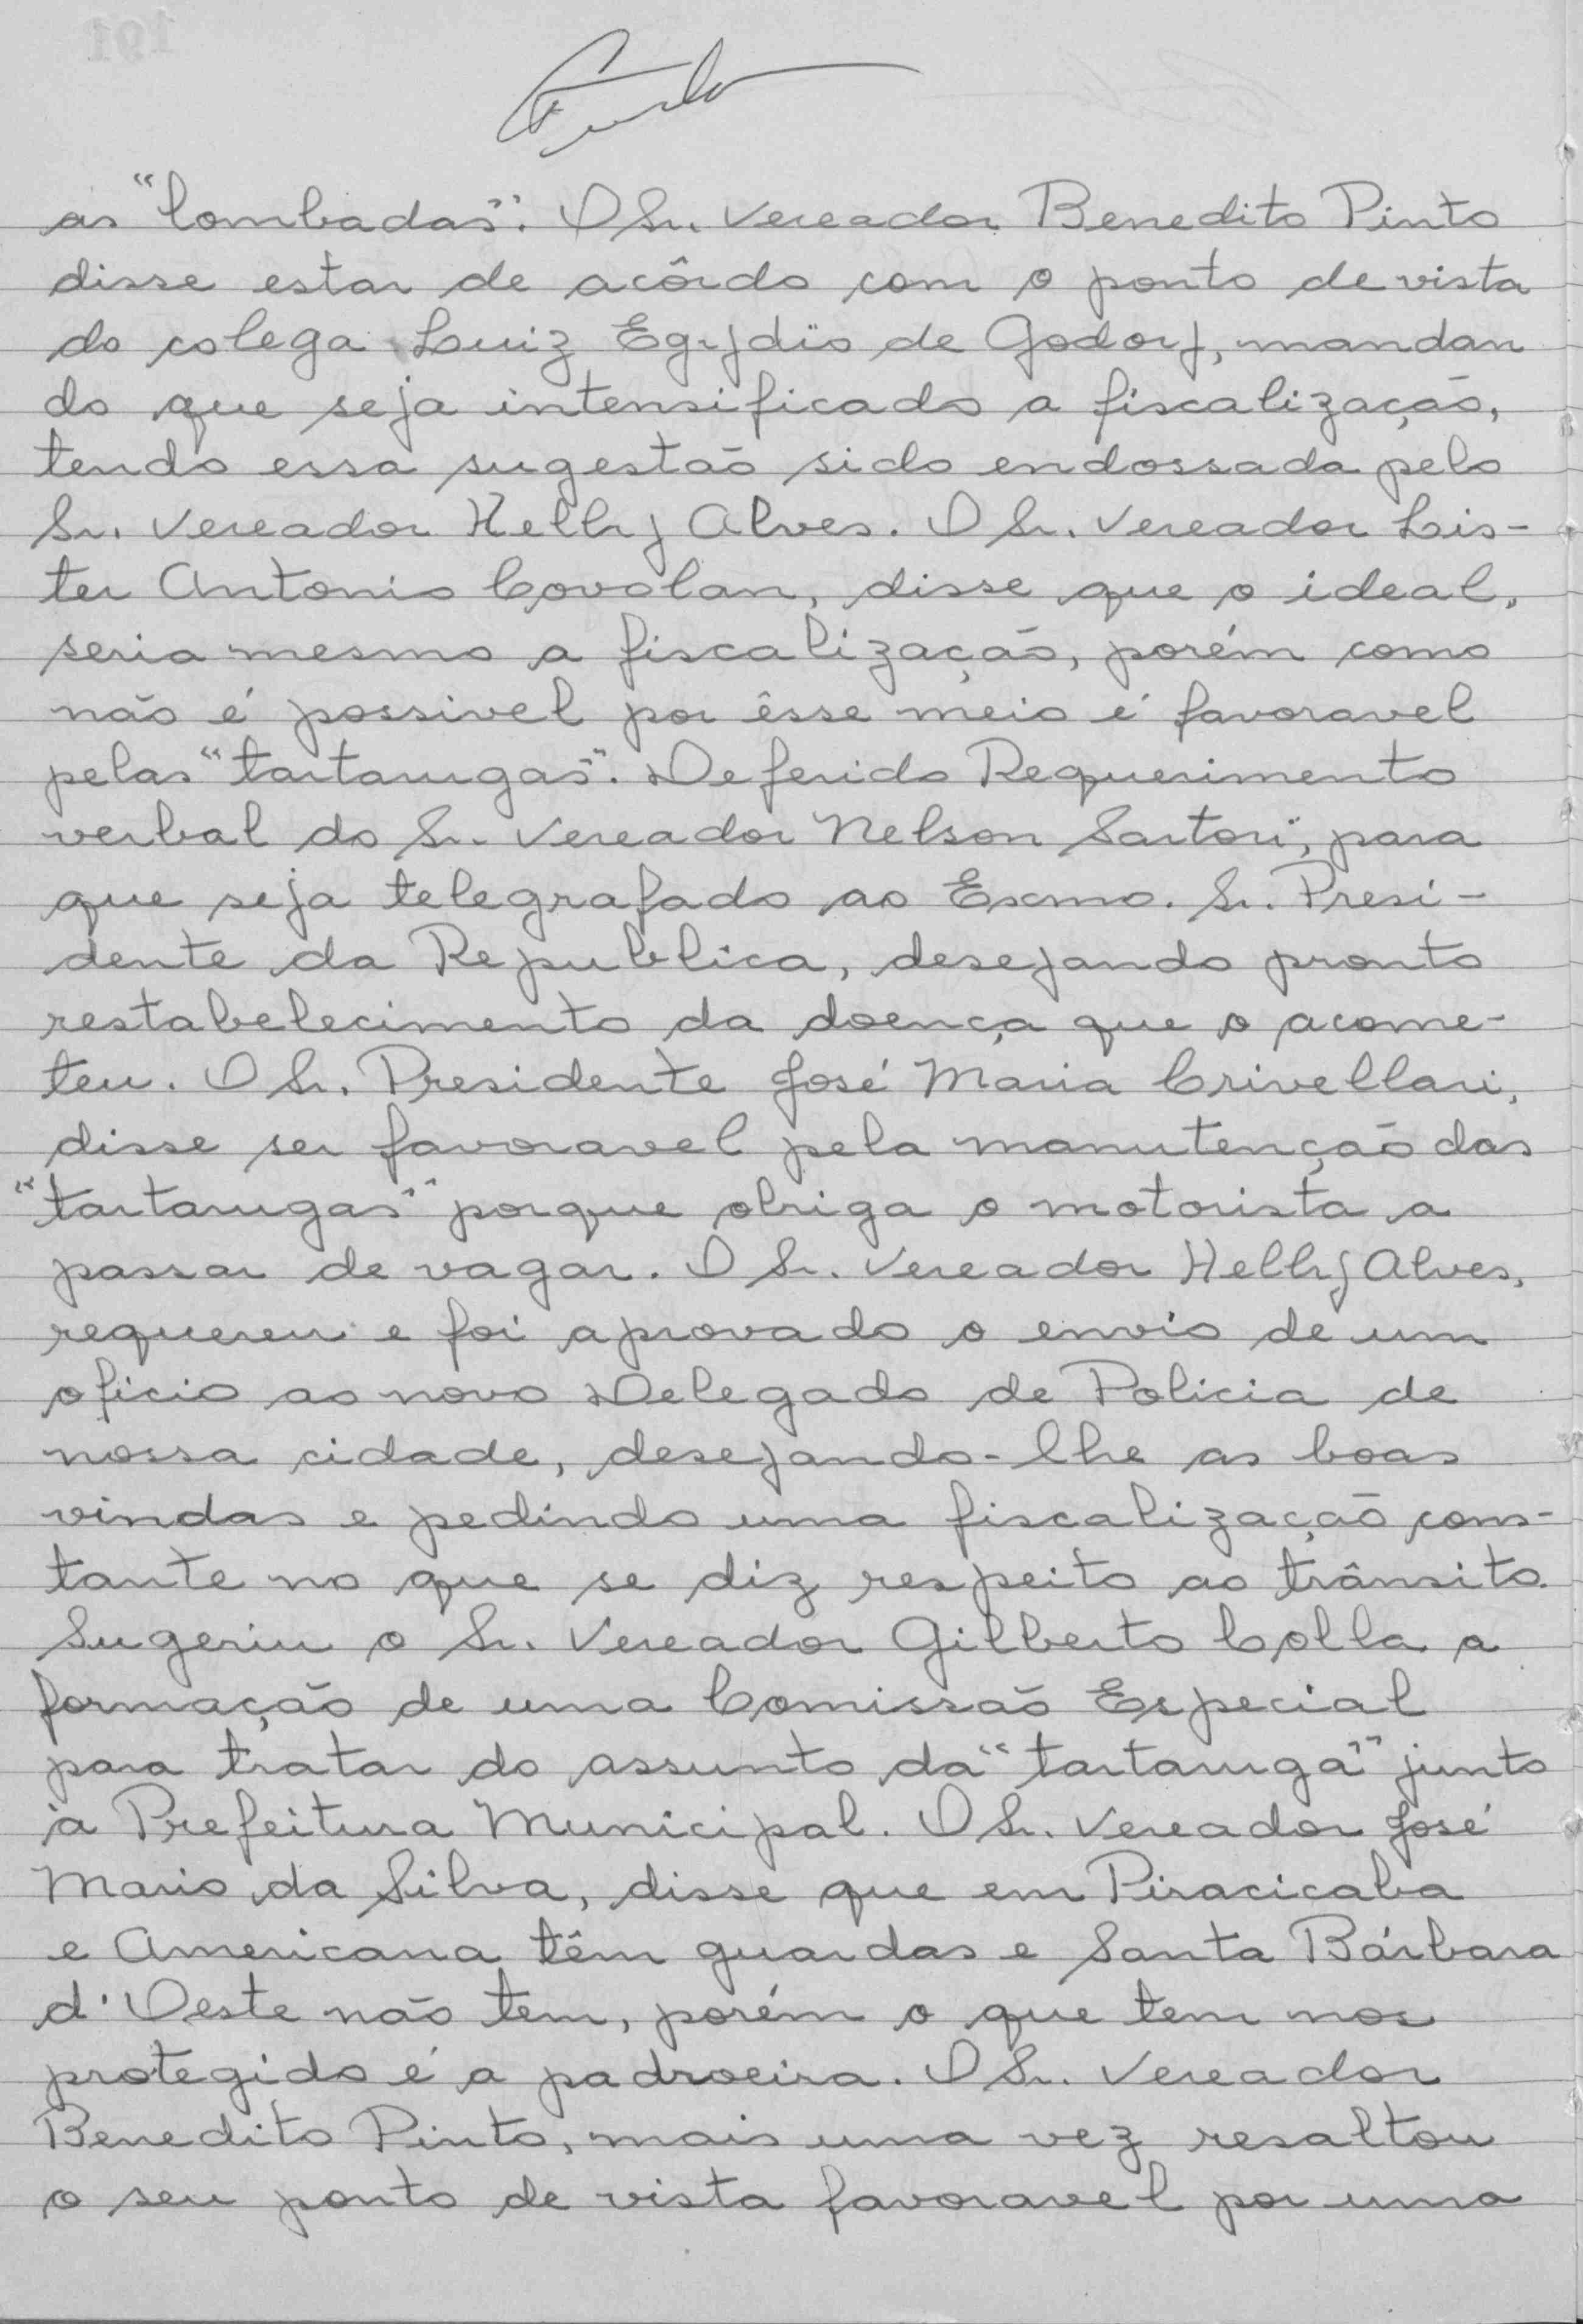 as "lombadas". O Sr. Vereador Benedito Pinto
disse estar de acôrdo com o ponto de vista
do colega Luiz Egydio de Godoy, mandan
do que seja intensificado a fiscalização,
tendo essa sugestão sido endossada pelo
Sr. Vereador Helly Alves. O Sr. Vereador Lis-
ter Antonio Covolan, disse que o ideal,
seria mesmo a fiscalização, porém como
não é possivel por êsse meio é favoravel
pelas "tartarugas". Deferido Requerimento
verbal do Sr. Vereador Nelson Sartori, para
que seja telegrafado ao Exmo. Sr. Presi-
dente da Republica, desejando pronto
restabelecimento da doença que o acome-
teu. O Sr. Presidente José Maria Crivellari,
disse ser favoravel pela manutenção das
"tartarugas" porque obriga o motorista a
passar de vagar. O Sr. Vereador Helly Alves,
requereu e foi aprovado o envio de um
oficio ao novo Delegado de Policia de
nossa cidade, desejando-lhe as boas
vindas e pedindo uma fiscalização cons-
tante no que se diz respeito ao trânsito.
Sugeriu o Sr. Vereador Gilberto Colla a
formação de uma Comissão Especial
para tratar do assunto da "tartaruga" junto
à Prefeitura Municipal. O Sr. Vereador José
Mario da Silva, disse que em Piracicaba
e Americana têm guardas e Santa Bárbara
d'Oeste não tem, porém o que tem nos
protegido é a padroeira. O Sr. Vereador
Benedito Pinto, mais uma vez resaltou
o seu ponto de vista favoravel por uma